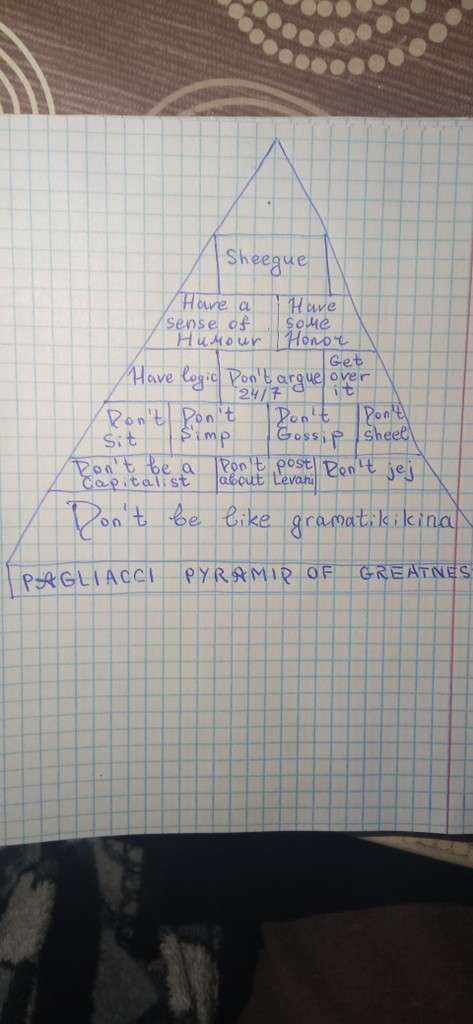 Sheegue
Have a
sense of
Humour
Have
some
Honor
Have logic
Don't argue
24/7
Get
over
it
Don't
Sit
Don't
Simp
Don't
Gossip
Don't
sheee
Don't be a
Capitalist
Don't post
about Levani
Don't jej
Don't be like gramatikikina
PAGLIACCI PYRAMID OF GREATNES